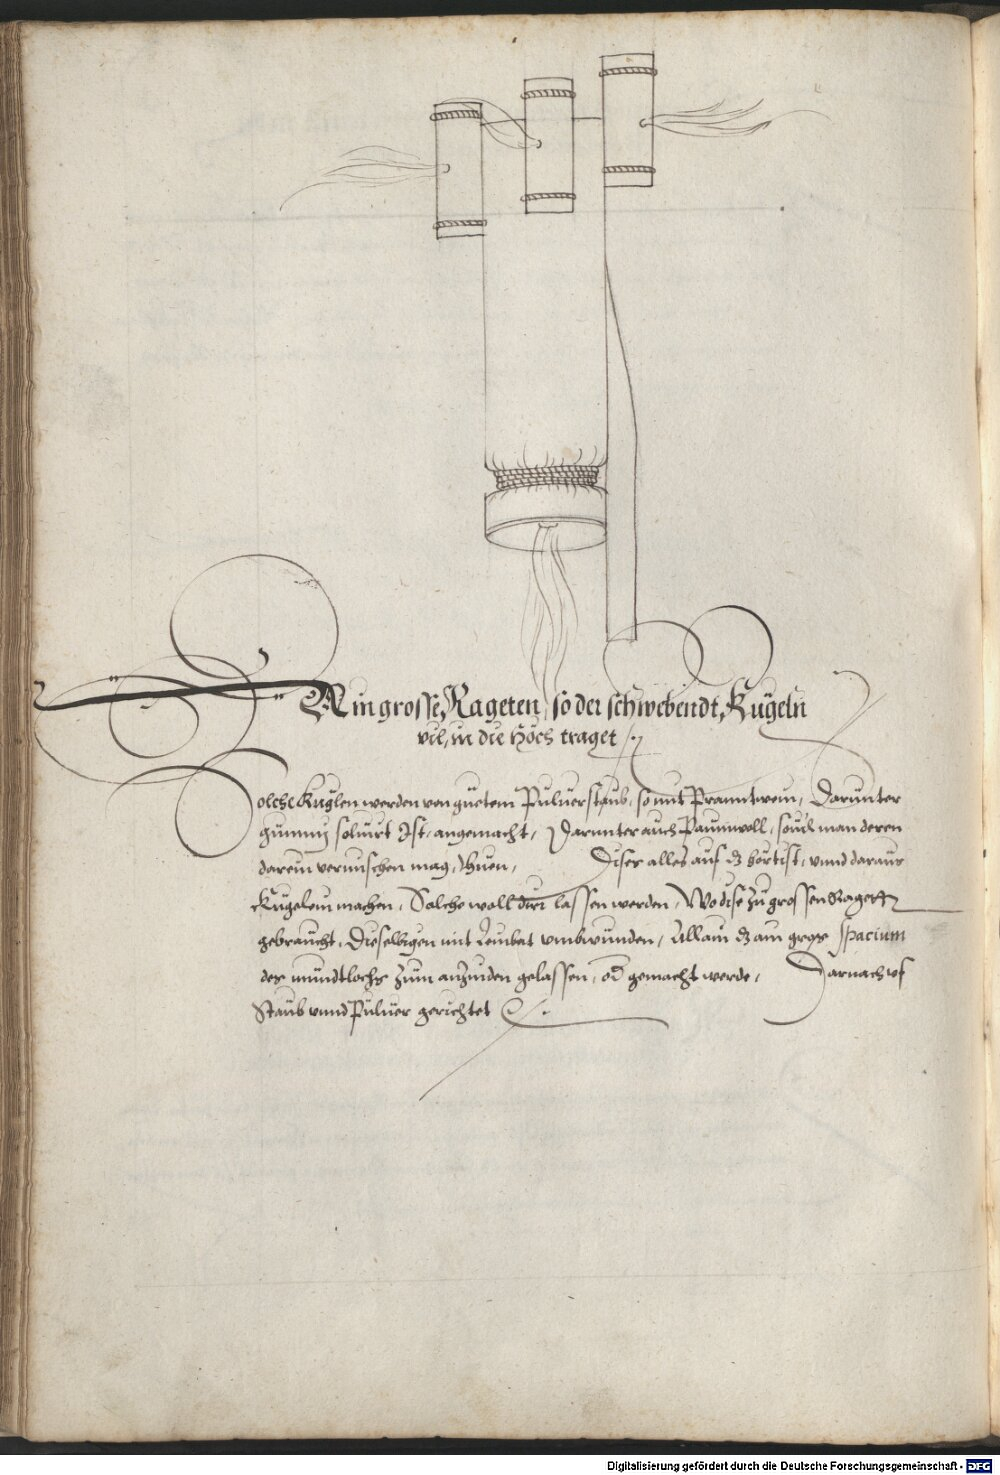 Ain grosse Rageten so der schwebendt Kügeln
vil, in die Höch traget
Solche Kuglen werden von guetem Puluerstaub, so mit Pranntwein, Darunter
gummj soluirt Ist, angemacht, Darunter auch Paumwoll, souil man deren
darein vermischen mag, thuen, Diser alles auf dz hörtist, vnnd daraus
Kügelein machen, Solche woll dürr lassen werden, Wo dise zu grossen Ragettn
gebraucht, Dieselbigen mit Leinbat vmbwunden, Allain dz ain gros spacium
des mundtlochs zum anzinden gelassen, od gemacht werde, Darnach vf
Staub vnnd Puluer gerichtet
Digitalisierung gefördert durch die Deutsche Forschungsgemeinschaft - DFG